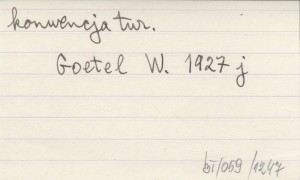 konwencja tur.
Goetel W. 1927 j
bT/059/1247